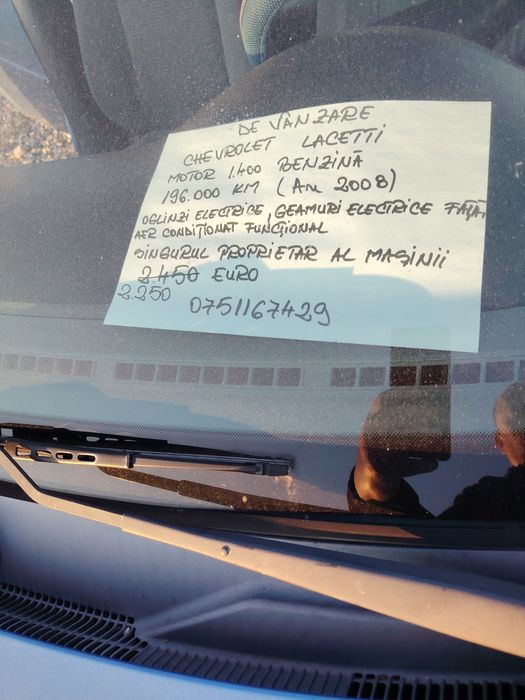 DE VÂNZARE
CHEVROLET LACETTI
MOTOR 1.400 BENZINĂ
196.000 KM (AN 2008)
OGLINZI ELECTRICE, GEAMURI ELECTRICE FAȚĂ,
AER CONDIȚIONAT FUNCȚIONAL
SINGURUL PROPRIETAR AL MAȘINII
2.450 EURO
2.250
0751167429